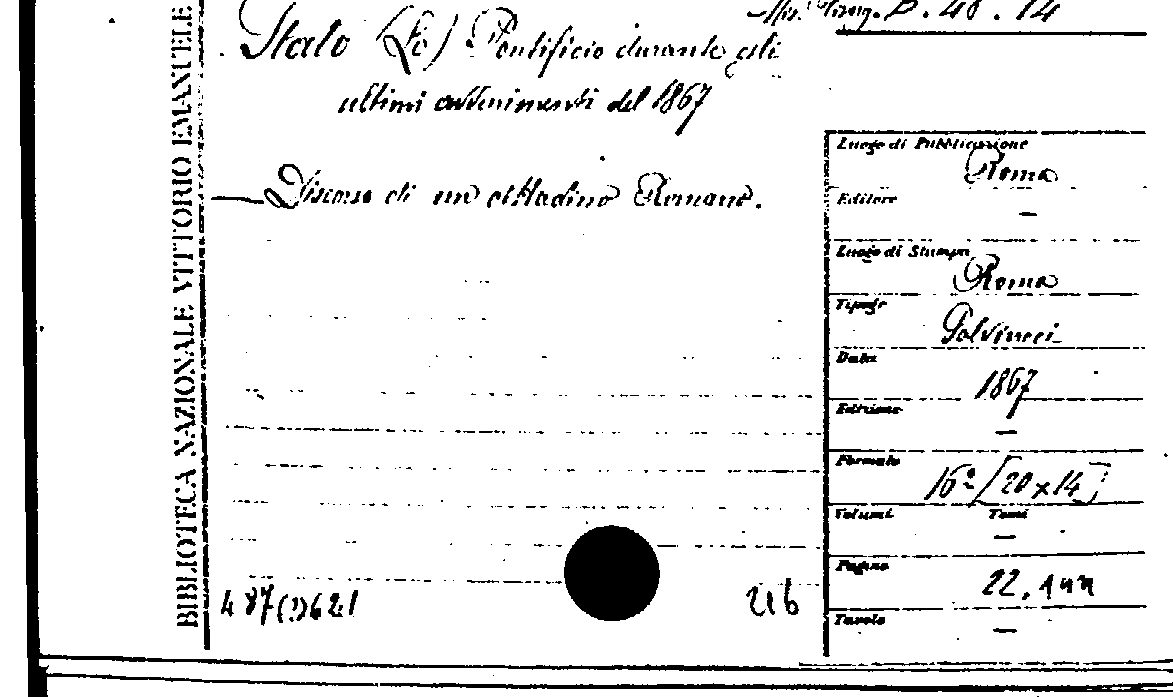 Misc. Risorg. B. 48. 14
Stato (Lo) Pontificio durante gli
ultimi avvenimenti del 1867
— Discorso di un cittadino Romano.
BIBLIOTECA NAZIONALE VITTORIO EMANUELE
Luogo di Pubblicazione
Roma
Editore
—
Luogo di Stampa
Roma
Tipogr.
Salviucci
Data
1867
Edizione
—
Formato
16º [20x14]
Volumi Tomi
—
Pagine
22.
Tavole
—
487(?)621
216